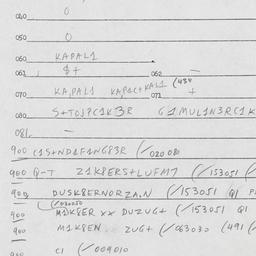 040 0
050 0
060 KAPAL1
061 $+ 062 —
070 KA,PAL1 KAPAC+KAL1 (434
071 +
080 S+TOJPC1K3R G1MUL1N3RC1K
081. —
900 C1S+ND1F1NG83R (/020 080
900 Q-T Z1K8ERS+LUFM7 (/153051 (/
900 DUSK8ERNORZA,N (/153051 Q1 P
(/030050
900 M1K8ER XX DUZUG+ (/153051 Q1
900 M1K8EN .. ZUG+ (/063030 (491 (
900 C1 (/009010